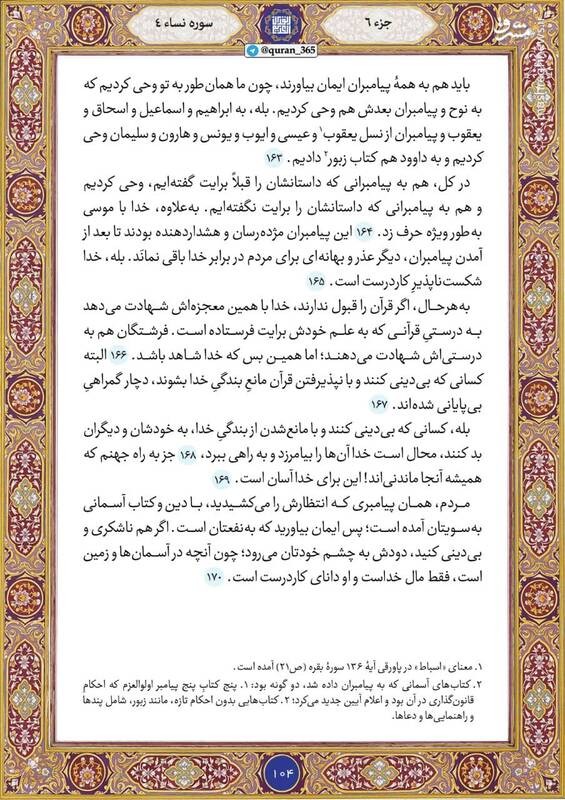 جزء ۶
سوره نساء ۴
@quran_365
مشرق
باید هم به همهٔ پیامبران ایمان بیاورند، چون ما همان‌طور به تو وحی کردیم که
به نوح و پیامبران بعدش هم وحی کردیم. بله، به ابراهیم و اسماعیل و اسحاق و
یعقوب و پیامبران از نسل یعقوب۱ و عیسی و ایوب و یونس و هارون و سلیمان وحی
کردیم و به داوود هم کتاب زبور۲ دادیم. ۱۶۳
در کل، هم به پیامبرانی که داستانشان را قبلاً برایت گفته‌ایم، وحی کردیم
و هم به پیامبرانی که داستانشان را برایت نگفته‌ایم. به‌علاوه، خدا با موسی
به‌طور ویژه حرف زد. ۱۶۴ این پیامبران مژده‌رسان و هشداردهنده بودند تا بعد از
آمدن پیامبران، دیگر عذر و بهانه‌ای برای مردم در برابر خدا باقی نمانَد. بله، خدا
شکست‌ناپذیرِ کاردرست است. ۱۶۵
به‌هرحال، اگر قرآن را قبول ندارند، خدا با همین معجزه‌اش شهادت می‌دهد
به درستیِ قرآنی که به علم خودش برایت فرستاده است. فرشتگان هم به
درستی‌اش شهادت می‌دهند؛ اما همین بس که خدا شاهد باشد. ۱۶۶ البته
کسانی که بی‌دینی کنند و با نپذیرفتن قرآن مانعِ بندگیِ خدا بشوند، دچار گمراهیِ
بی‌پایانی شده‌اند. ۱۶۷
بله، کسانی که بی‌دینی کنند و با مانع‌شدن از بندگیِ خدا، به خودشان و دیگران
بد کنند، محال است خدا آن‌ها را بیامرزد و به راهی ببرد، ۱۶۸ جز به راه جهنم که
همیشه آنجا ماندنی‌اند! این برای خدا آسان است. ۱۶۹
مردم، همان پیامبری که انتظارش را می‌کشیدید، با دین و کتاب آسمانی
به‌سویتان آمده است؛ پس ایمان بیاورید که به‌نفعتان است. اگر هم ناشکری و
بی‌دینی کنید، دودش به چشم خودتان می‌رود؛ چون آنچه در آسمان‌ها و زمین
است، فقط مال خداست و او دانای کاردرست است. ۱۷۰
۱. معنای «اسباط» در پاورقی آیهٔ ۱۳۶ سورهٔ بقره (ص۲۱) آمده است.
۲. کتاب‌های آسمانی که به پیامبران داده شد، دو گونه بود: ۱. پنج کتابِ پنج پیامبر اولوالعزم که احکام
قانون‌گذاری در آن بود و اعلام آیین جدید می‌کرد؛ ۲. کتاب‌هایی بدون احکام تازه، مانند زبور، شامل پندها
و راهنمایی‌ها و دعاها.
۱۰۴